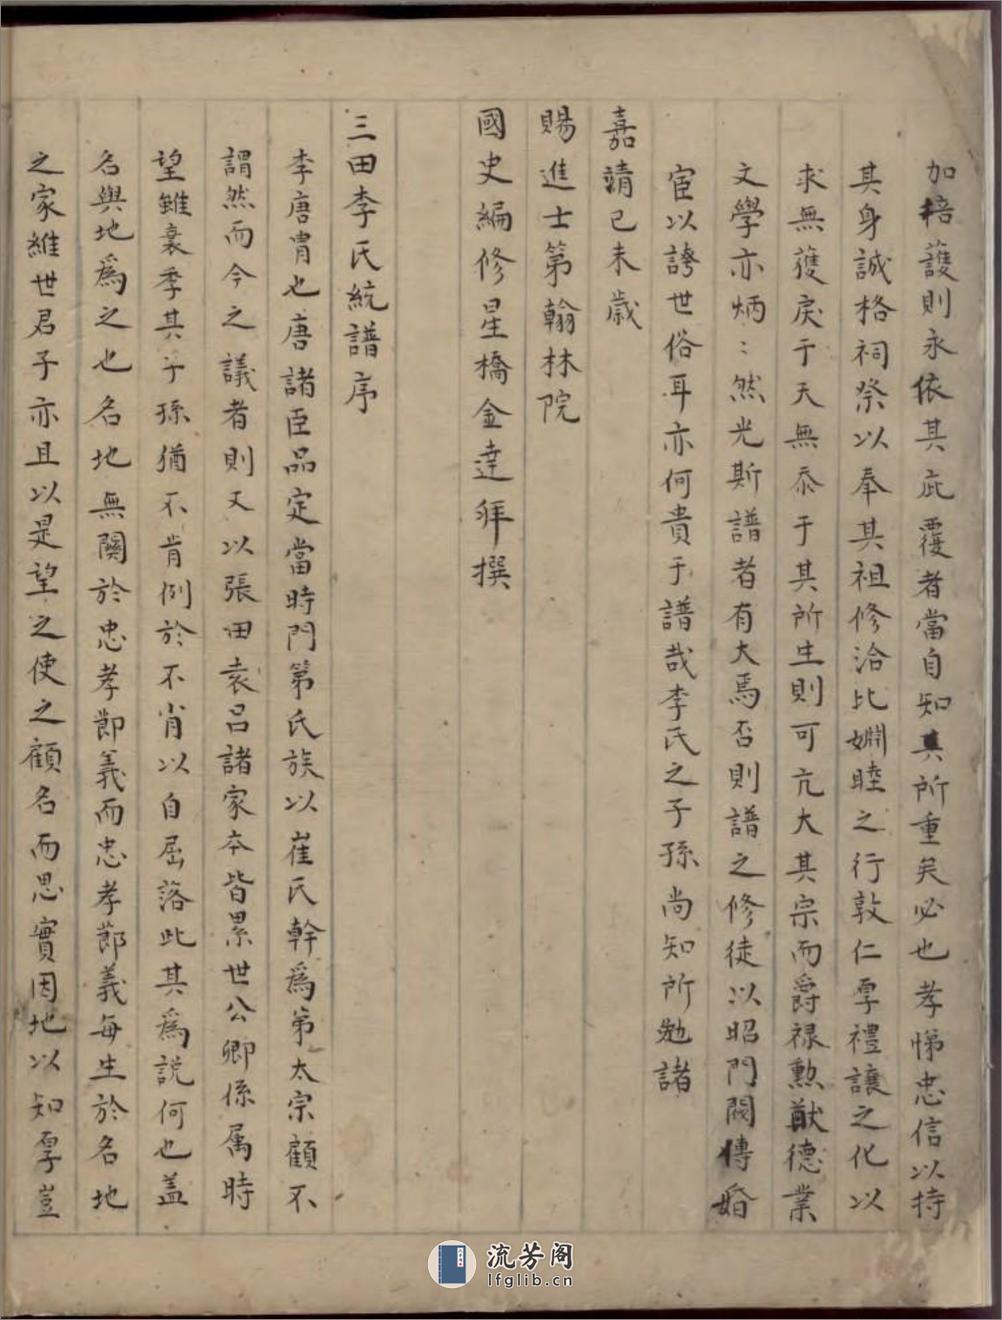 加培護則永依其庇覆者當自知其所重矣必也孝悌忠信以持
其身誠格祠祭以奉其祖修洽比婣睦之行敦仁厚禮讓之化以
求無獲戾于天無忝于其所生則可亢大其宗而爵祿勲猷德業
文學亦炳〻然光斯譜者有大焉否則譜之修徒以昭門閥傳婚
宦以誇世俗耳亦何貴于譜哉李氏之子孫尚知所勉諸
嘉靖己未歲
賜進士第翰林院
國史編修星橋金達拜撰
三田李氏統譜序
李唐胄也唐諸臣品定當時門第氏族以崔氏幹爲第太宗顧不
謂然而今之議者則又以張田袁呂諸家本皆累世公卿係属時
望雖衰季其子孫猶不肯例於不肖以自屈落此其爲説何也盖
名與地爲之也名地無關於忠孝節義而忠孝節義每生於名地
之家維世君子亦且以是望之使之顧名而思實因地以知厚豈
流芳阁
lfglib.cn